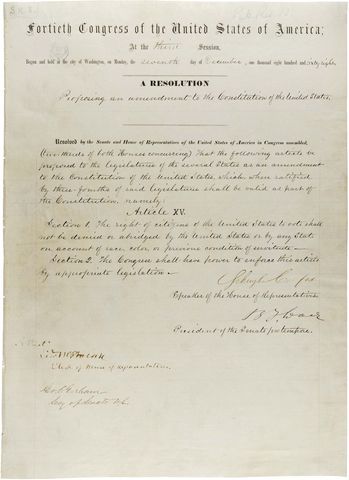 Fortieth Congress of the United States of America;
At the third Session,
Begun and held at the city of Washington, on Monday, the seventh day of December, one thousand eight hundred and sixty-eight
A RESOLUTION
Proposing an amendment to the Constitution of the United States.
Resolved by the Senate and House of Representatives of the United States of America in Congress assembled,
(two-thirds of both Houses concurring) That the following article be
proposed to the legislatures of the several States as an amendment
to the Constitution of the United States which, when ratified
by three-fourths of said legislatures shall be valid as part of
the Constitution, namely:
Article XV.
Section 1. The right of citizens of the United States to vote shall
not be denied or abridged by the United States or by any State
on account of race, color, or previous condition of servitude—
Section 2. The Congress shall have power to enforce this article
by appropriate legislation—
Schuyler Colfax
Speaker of the House of Representatives.
B F Wade
President of the Senate pro tempore.
Attest
Clerk of House of Representatives.
Geo C Gorham
Secy of Senate U.S.